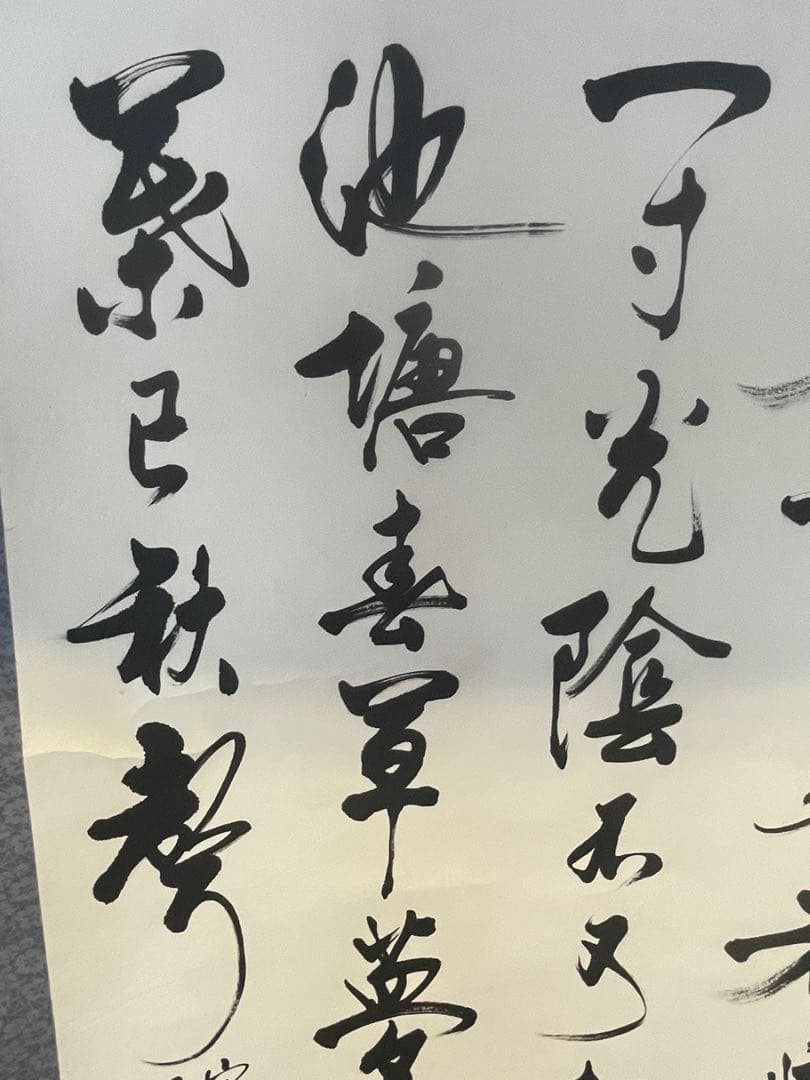 一寸光陰不可
池塘春草夢
葉已秋聲